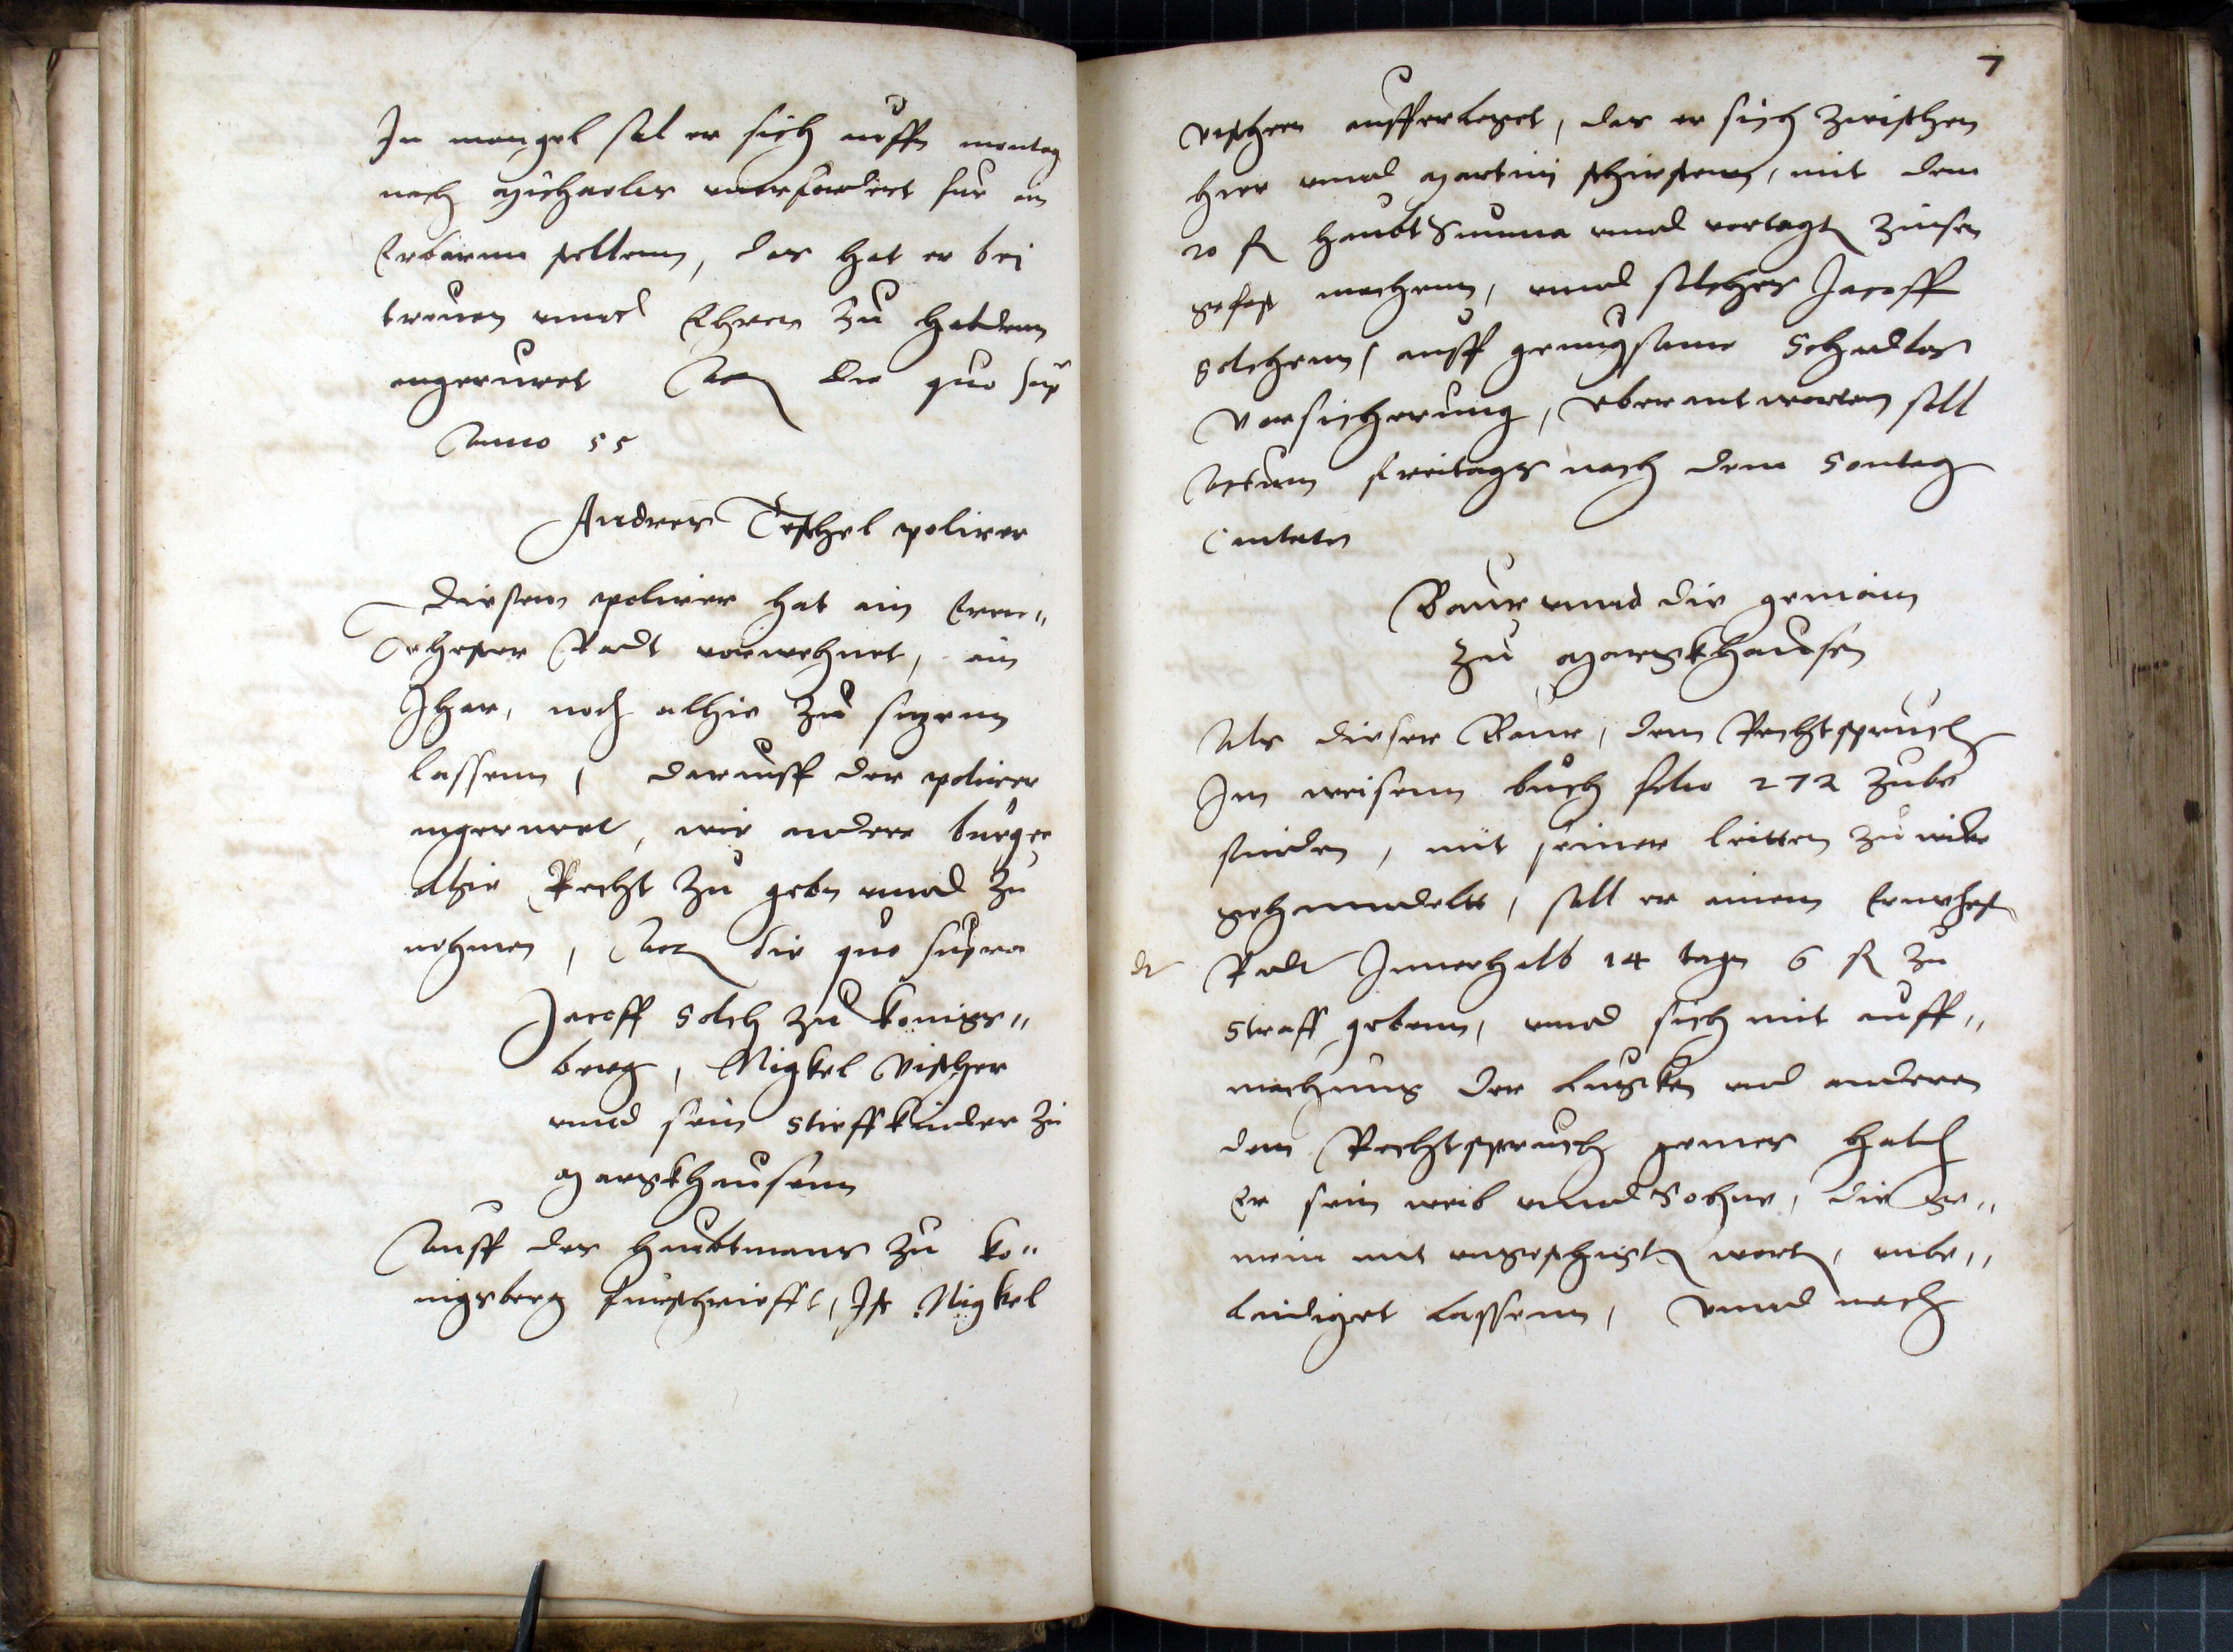 In mangel sol er sich auffn montag
nach Michaelis unerfordert fur ein
Erbarnn stellenn, das hat er bei
trauen unnd Ehren zu haldenn
angeruret Act die quo sup
Anno 55
Andres Teschel polirer
Diesem polirer hat ein Eren„
vhester Radt vorwehnet, ein
Ihar, noch alhie zu sizenn
lassenn, darauff der polirer
angeruret, wie andere burger
alhie Recht zu gebn unnd zu
nehmen, Act die quo supra
Jacoff Solch zu Konigs„
berg, Nigkel Vischer
unnd sein Stieffkinder zu
Margkhausenn
Auff des Haubtmans zu Ko„
nigsberg furschriefft, Ist Nigkel
7
Vischern aufferleget, das er sich zwischen
hier unnd Martini schirsten, mit dem
20 fl Haubt Summa unnd vertagtn zinsen
gefast machenn, unnd solches Jacoff
Solchenn, auff genugsame Schadlos
Vorsicherung, uberantworten soll
Actum Freitags nach dem Sontag
Cantate
Baur unnd die gemain
zu Margkhausen
Als dieser Baur, dem Rechtspruch
Im weisenn buch folio 272 zube
finden, mit seiner leitten zu wider
gehanndelt, soll er einem Ernvhest
dt Radt Innerhalb 14 tagen 6 fl zu
Straff gebenn, unnd sich mit auff„
machung der Lugken und anderen
dem Rechtspruch gemes
Er sein weib unnd Sohne, die ge„
mein mit ungeschigktn wortn, unbe„
leidiget lassenn, Unnd nach